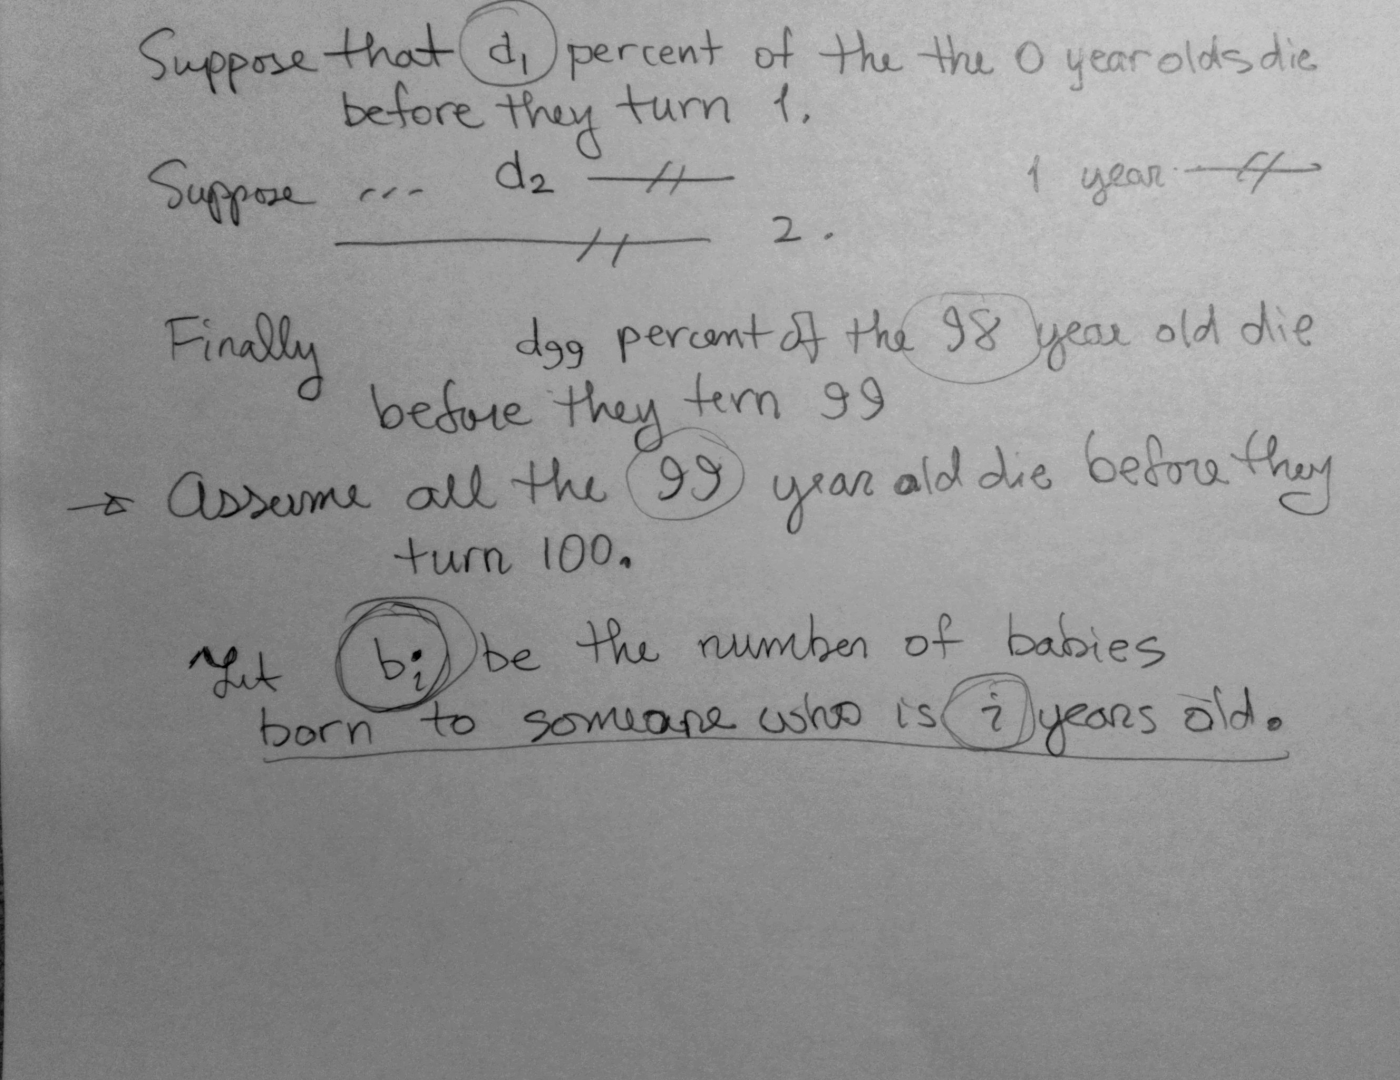 Suppose that d1 percent of the the 0 year olds die
before they turn 1.
Suppose --- d2 —//— 1 year —//—
—//— 2.
Finally d99 percent of the 98 year old die
before they tern 99
→ Assume all the 99 year old die before they
turn 100.
Let bi be the number of babies
born to someone who is i years old.